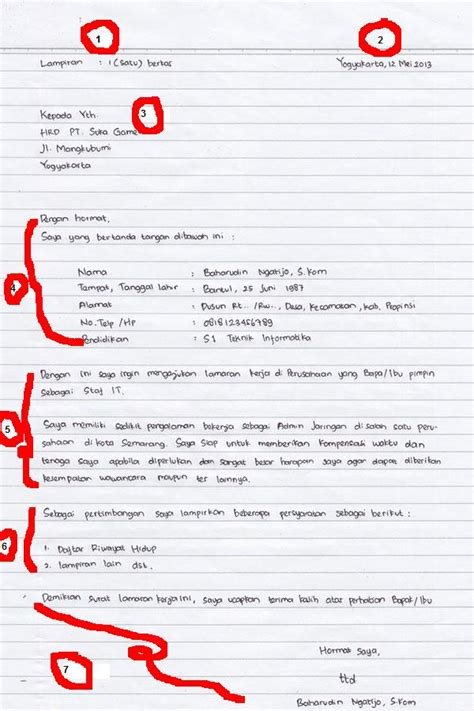 1
2
Lampiran : 1 (satu) berkas
Yogyakarta, 12 Mei 2013
3
Kepada Yth.
HRD PT. Suka Game
Jl. Mangkubumi
Yogyakarta
Dengan hormat,
Saya yang bertanda tangan dibawah ini :
4
Nama : Baharudin Ngatijo, S.Kom
Tempat, Tanggal lahir : Bantul, 25 Juni 1987
Alamat : Dusun Rt.. /Rw.., Desa, Kecamatan, Kab, Propinsi
No.Telp /Hp : 0818123456789
Pendidikan : S1 Teknik Informatika
Dengan ini saya ingin mengajukan lamaran kerja di Perusahaan yang Bapa/Ibu pimpin
sebagai Staf IT.
5
Saya memiliki sedikit pengalaman bekerja sebagai Admin Jaringan di salah satu peru-
sahaan di kota Semarang. Saya siap untuk memberikan kompensasi waktu dan
tenaga saya apabila diperlukan dan sangat besar harapan saya agar dapat diberikan
kesempatan wawancara maupun tes lainnya.
Sebagai pertimbangan saya lampirkan beberapa persyaratan sebagai berikut :
6
1. Daftar Riwayat Hidup
2. lampiran lain dst.
Demikian surat lamaran kerja ini, saya ucapkan terima kasih atas perhatian Bapak/Ibu
7
Hormat Saya,
ttd
Baharudin Ngatijo, S.Kom